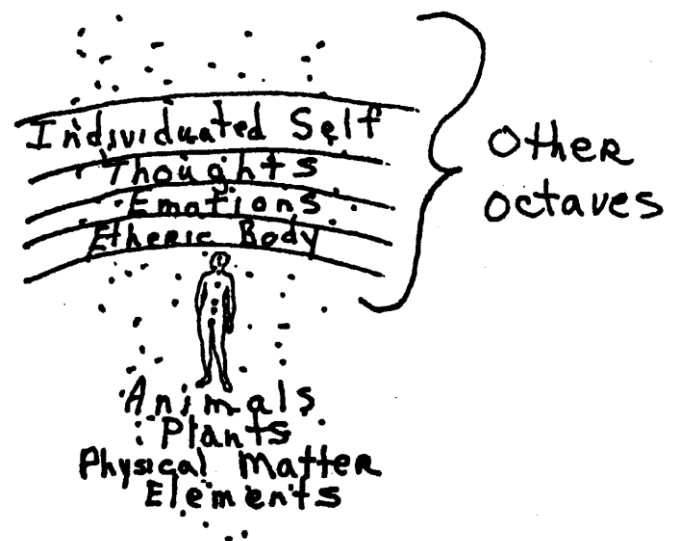 Individuated Self
Thoughts
Emotions
Etheric Body
Other
octaves
Animals
Plants
Physical Matter
Elements